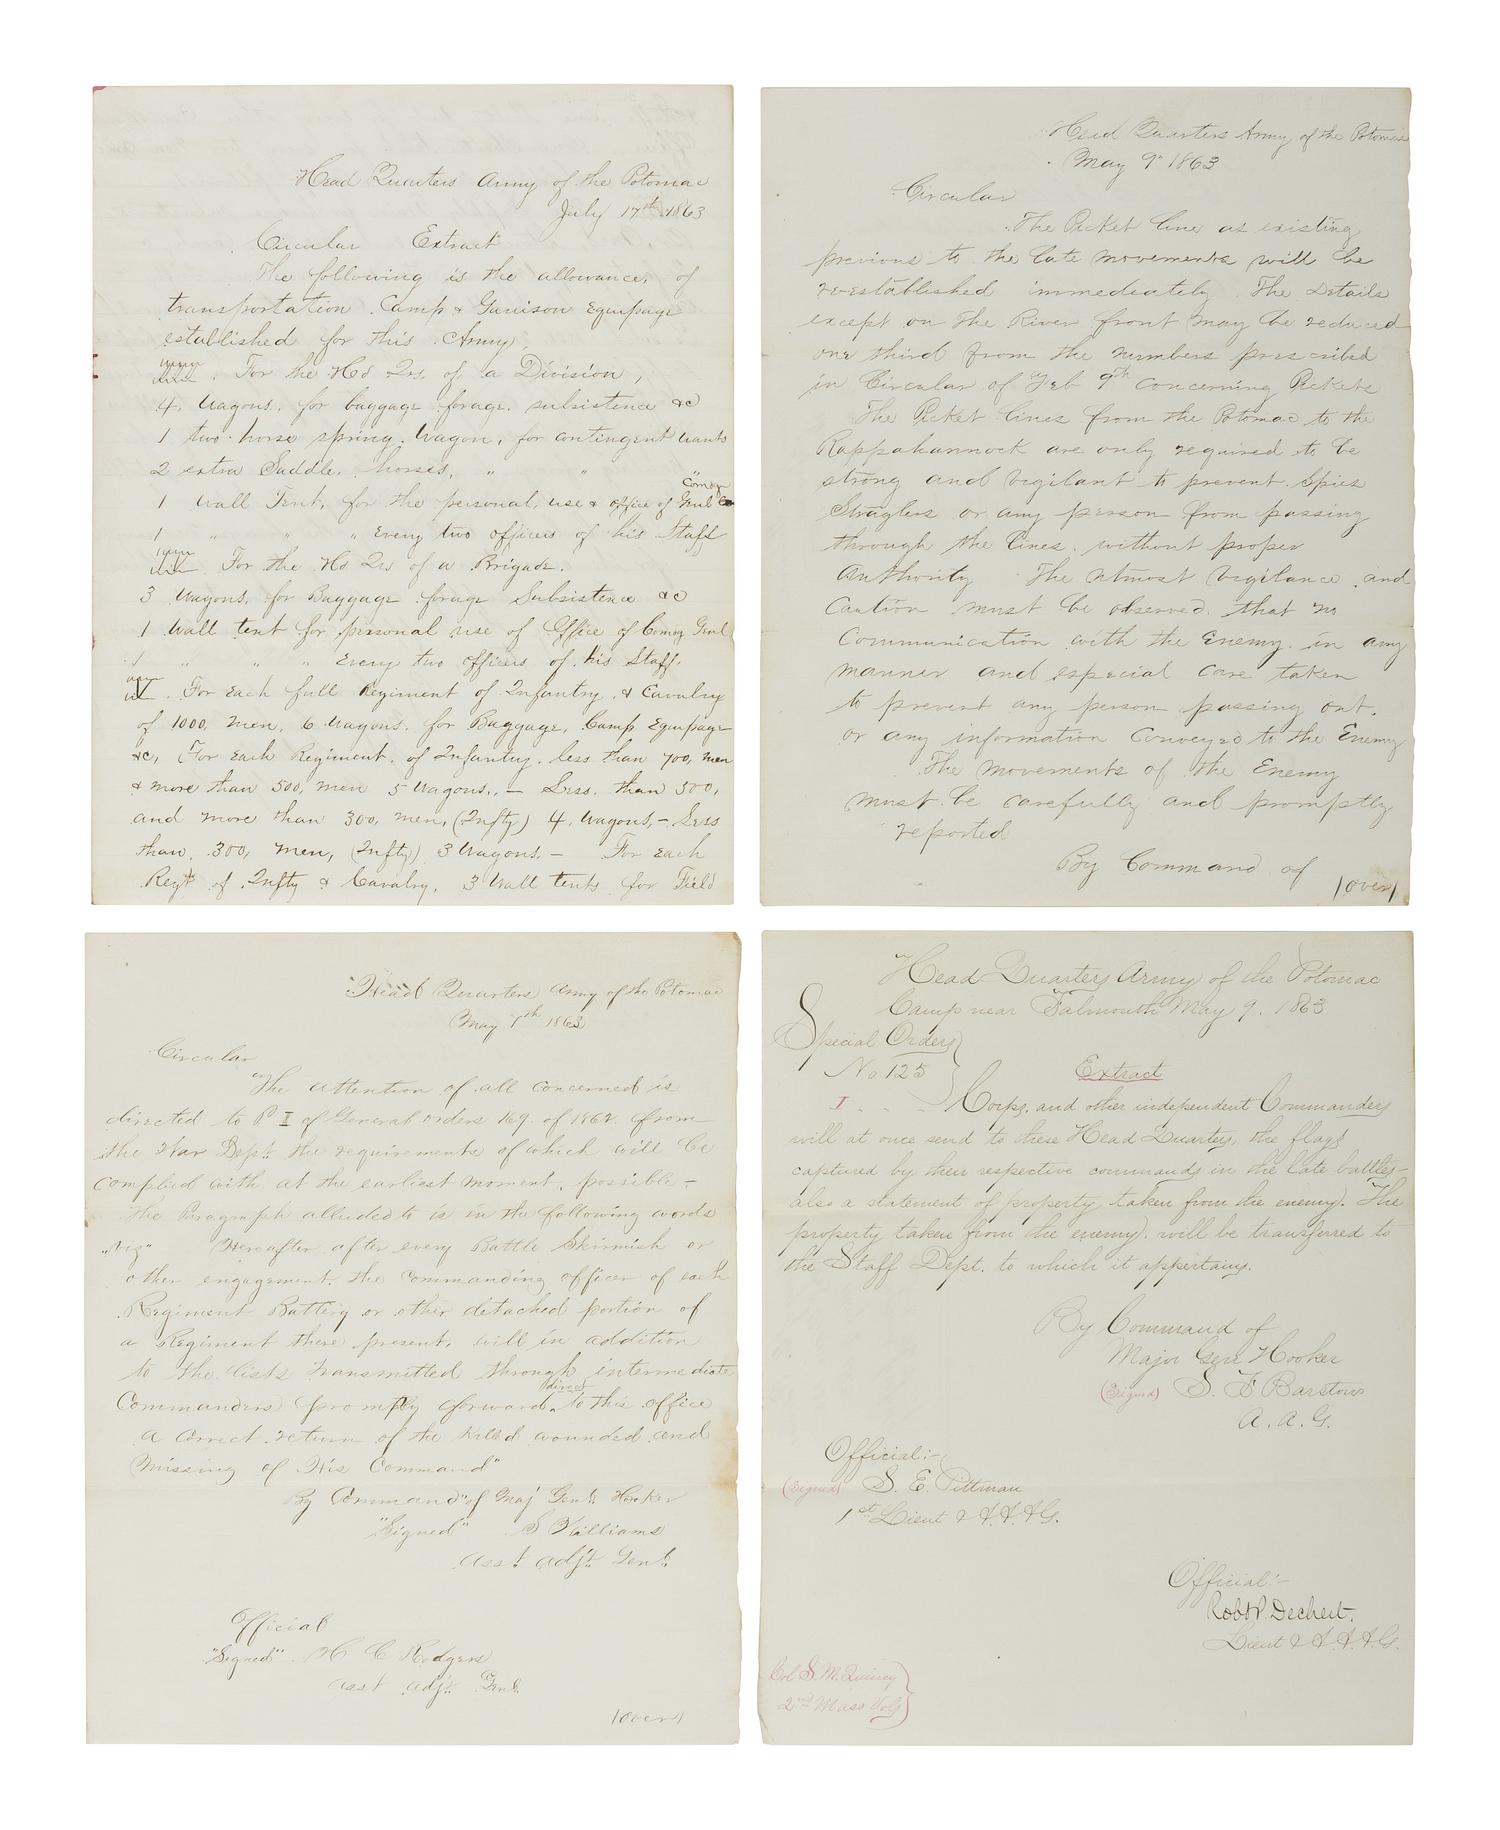 Head Quarters Army of the Potomac
July 17th 1863
Circular Extract
The following is the allowance, of
transportation Camp & Garrison Equipage
established for this Army,
For the Hd Qrs. of a Division,
4 Wagons. for baggage forage. subsistence &c
1 two horse spring. Wagon, for contingent wants
2 extra Saddle. horses, " "
1 Wall Tent, for the personal, use & office of Comdg Genl
1 " " " Every two officers of his Staff
For the Hd Qrs of a Brigade.
3 Wagons, for Baggage forage Subsistence &c
1 Wall tent for personal use of Office of Comdg Genl
1 " " " Every two officers of his Staff.
IV. For each full Regiment of Infantry, & Cavalry
of 1000, men, 6 Wagons. for Baggage, Camp Equipage
&c, (For each Regiment. of Infantry. less than 700, men
& more than 500, men 5 Wagons., — Less. than 500,
and more than 300, men, (Infty) 4. Wagons,— Less
than. 300, men, (Infty) 3 Wagons.— For each
Regt of Infty & Cavalry, 3 Wall tents for Field
Head Quarters Army of the Potomac
May 9" 1863
Circular
The Picket line as existing
previous to the late movements will be
re-established immediately The Details
except on the River front may be reduced
one third from the numbers prescribed
in Circular of "Feb 9th concerning Pickets
The Picket lines from the Potomac to the
Rappahannock are only required to be
strong and vigilant to prevent Spies
Straglers or any person from passing
through the lines. without proper
Authority The utmost vigilance and
Caution must be observed. that no
Communication with the Enemy. in any
manner and especial care taken
to prevent any person passing out.
or any information Conveyed to the Enemy
The movements of the Enemy
must be carefully and promptly
reported
By Command of
/over/
"Head Quarters Army of the Potomac
May 7th 1863
Circular
"The attention of all concerned is
directed to P I of General orders 169. of 1862 from
the War Dept. the requirements of which will be
complied with at the earliest moment. possible—
The Paragraph alluded to is in the following words
"Viz" Hereafter after every Battle Skirmish or
other engagement. the commanding officer of each
Regiment Battery or other detached portion of
a Regiment there present, will in addition
to the lists transmitted through intermediate
Commanders promptly forward direct to this office
a correct return of the killed wounded and
missing of His Command"
By Command "of Maj Genl. Hooker
"Signed" S Williams
Asst Adjt. Genl.
Official
"Signed" H C Rodgers
Asst Adjt. Genl.
/over/
Head Quarters Army of the Potomac
Camp near Falmouth May 9. 1863
Special Orders
No 125
Extract
I. . . Corps, and other independent Commanders
will at once send to these Head Quarters, the flags
captured by their respective commands in the late battles—
also a statement of property taken from the enemy. The
property taken from the enemy. will be transferred to
the Staff Dept. to which it appertains.
By Command of
Major Genl Hooker
(Signed) S. F Barstow
A. A. G.
Official:-
(Signed) S. E. Pittman
1st Lieut & A.A.A.G.
Official:-
Robt P. Dechert.
Lieut & A.A.A.G.
Col S. M. Quincy
2nd Mass Vols